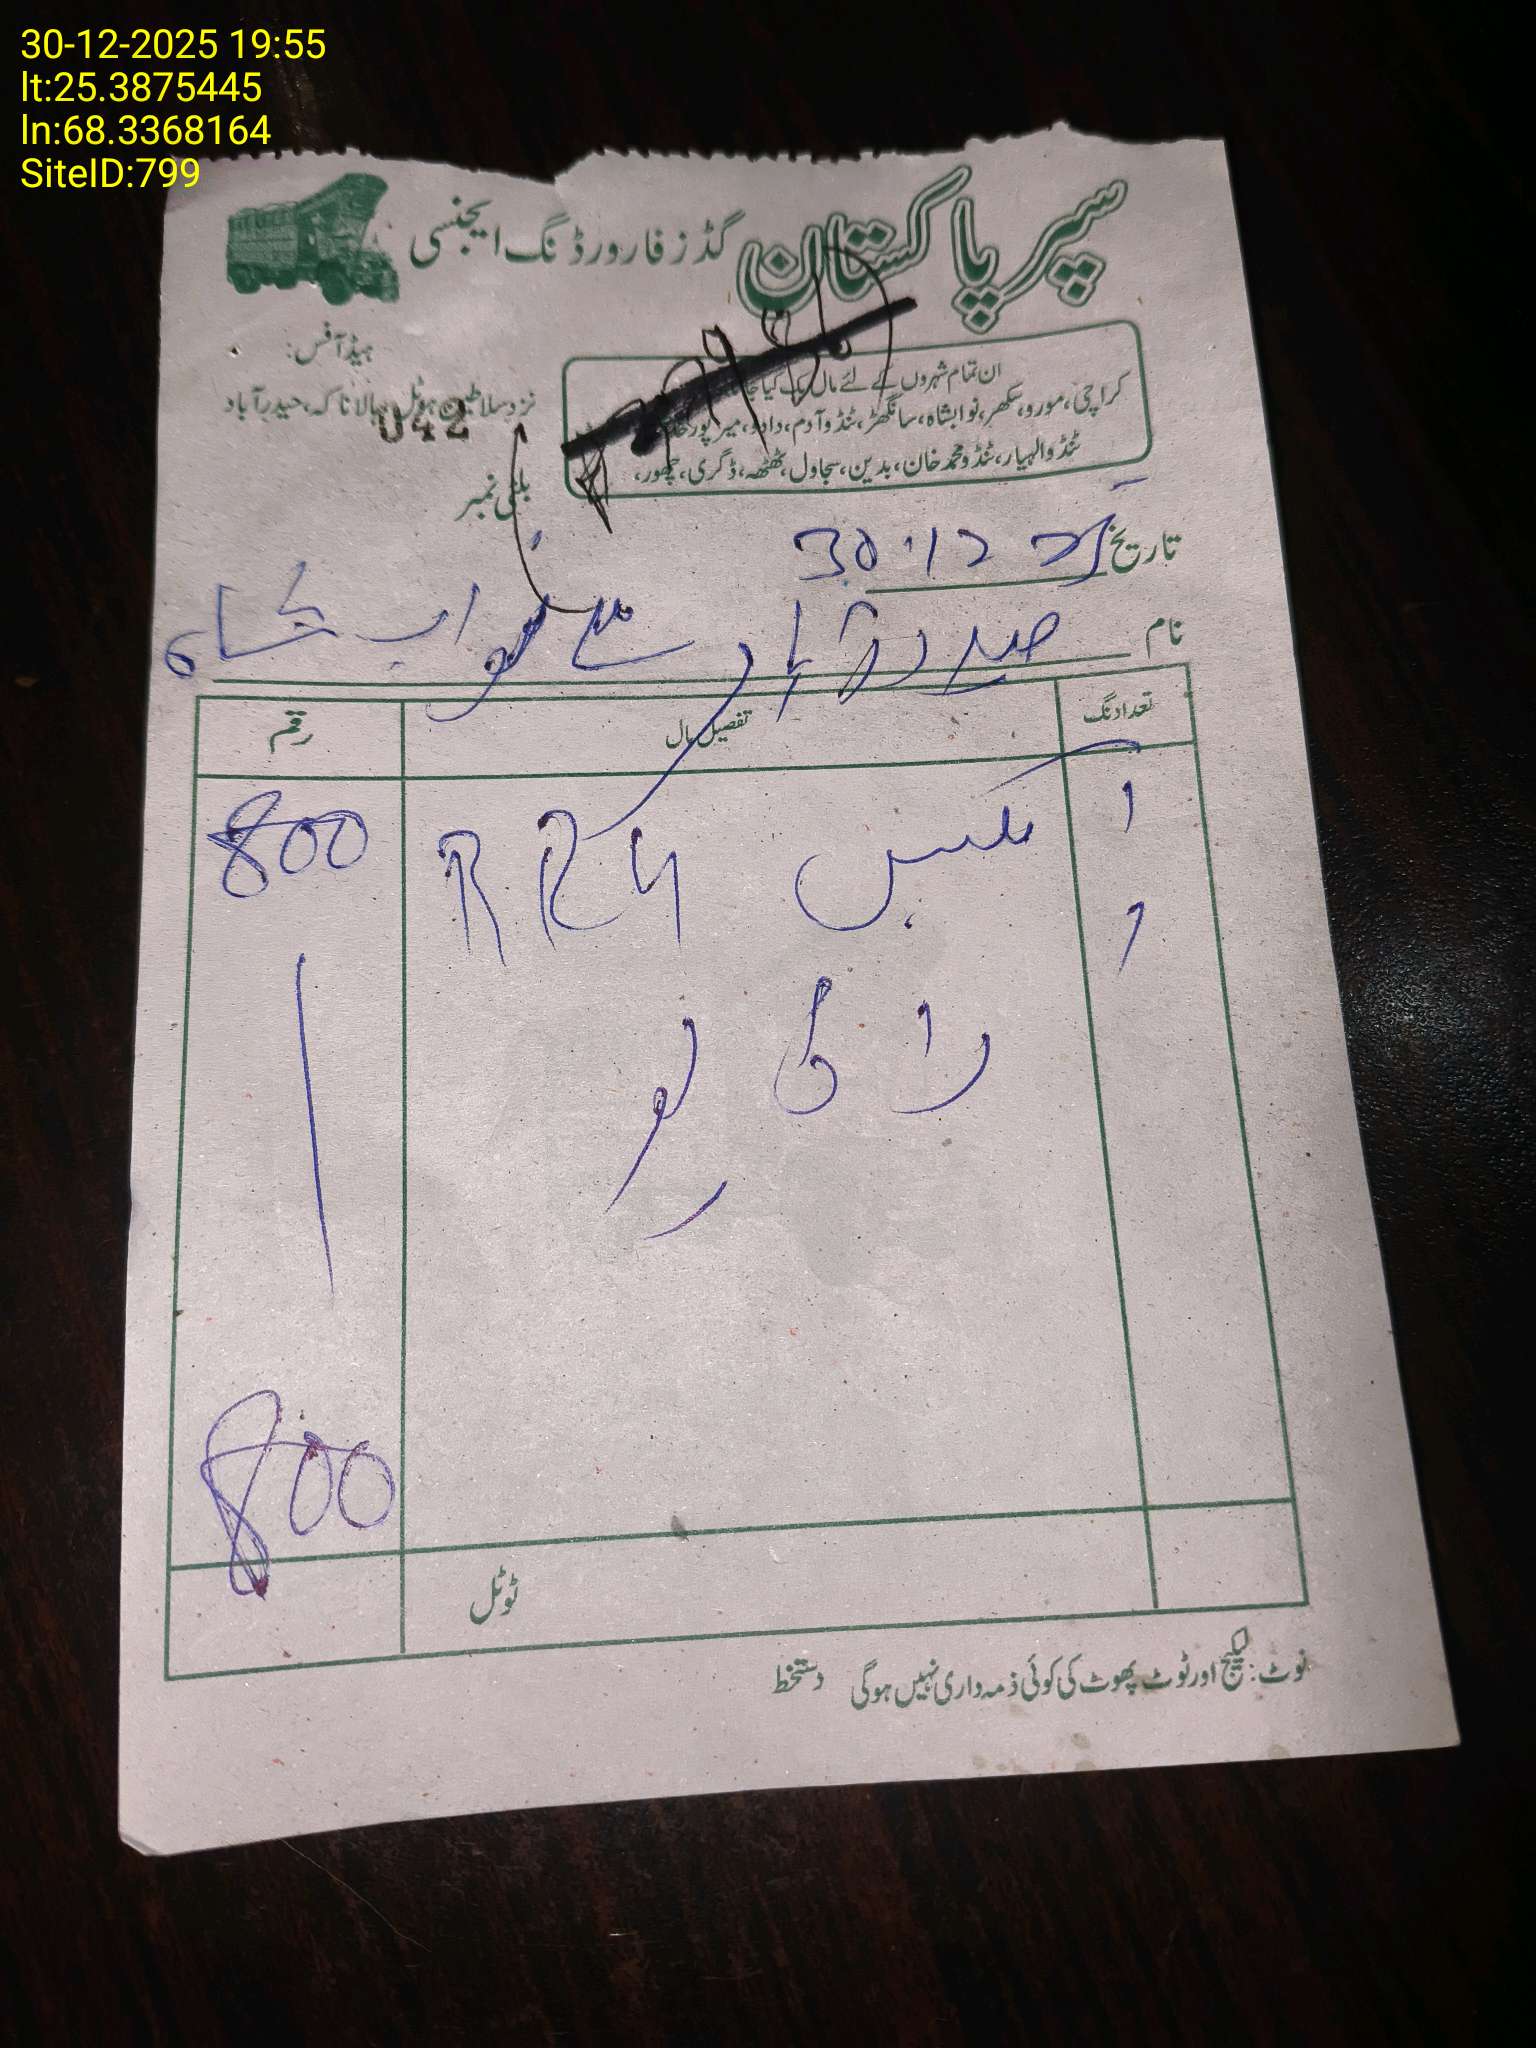 30-12-2025 19:55
lt:25.3875445
ln:68.3368164
SiteID:799
سپر پاکستان گڈز فارورڈنگ ایجنسی
ہیڈ آفس:
نزد سلاطین ہوٹل ہالا ناکہ، حیدرآباد
042
ان تمام شہروں کے لئے مال بک کیا
کراچی، مورو، سکھر، نوابشاہ، سانگھڑ، ٹنڈوآدم، دادو، میرپور
ٹنڈوالہیار، ٹنڈومحمدخان، بدین، سجاول، ٹھٹھہ، ڈگری، چھور،
بلٹی نمبر
تاریخ 30.12 25
نام حیدرآباد سے نواب شاہ
تعداد نگ تفصیل مال رقم
1 بکس RRU 800
800
ٹوٹل
نوٹ: لیکیج اور ٹوٹ پھوٹ کی کوئی ذمہ داری نہیں ہوگی دستخط